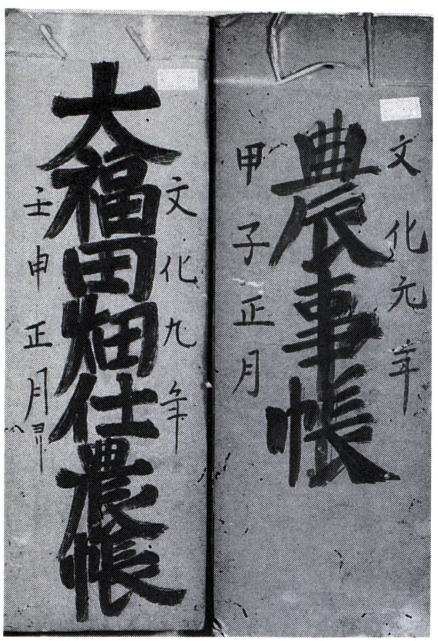 文化元年
農事帳
甲子正月
文化九年
大福田畑仕農帳
壬申正月